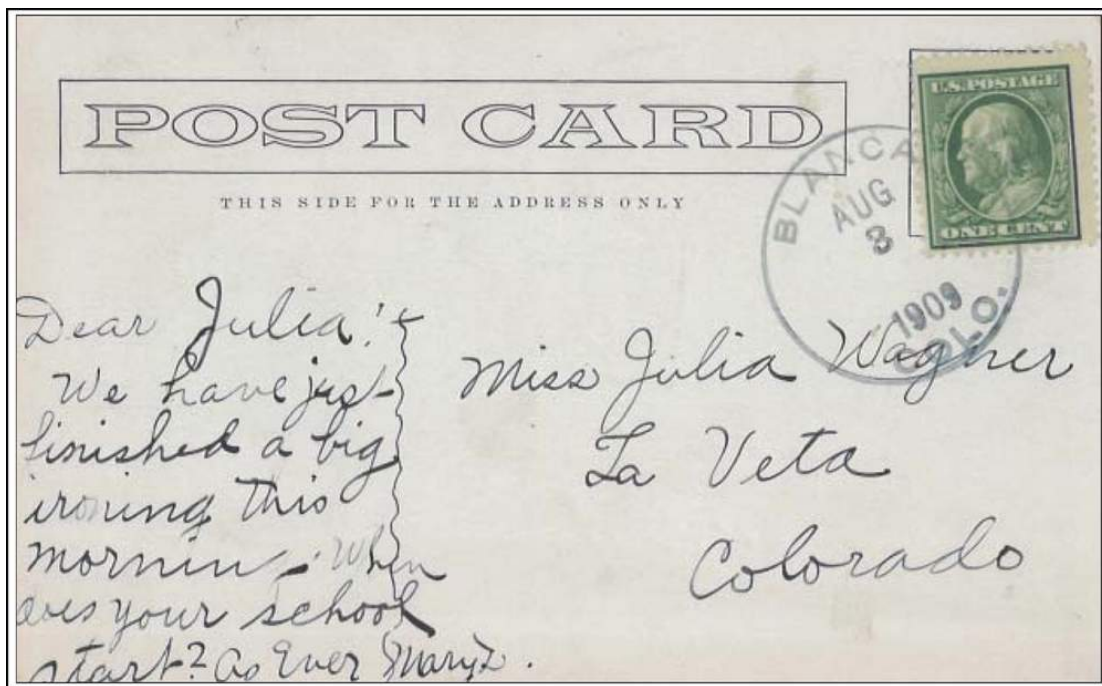 POST CARD
THIS SIDE FOR THE ADDRESS ONLY
U.S. POSTAGE
ONE CENT
BLANCA
AUG
3
1909
COLO.
Dear Julia!
We have just
finished a big
ironing this
mornin. When
does your school
start? As Ever Mary
Miss Julia Wagner
La Veta
Colorado